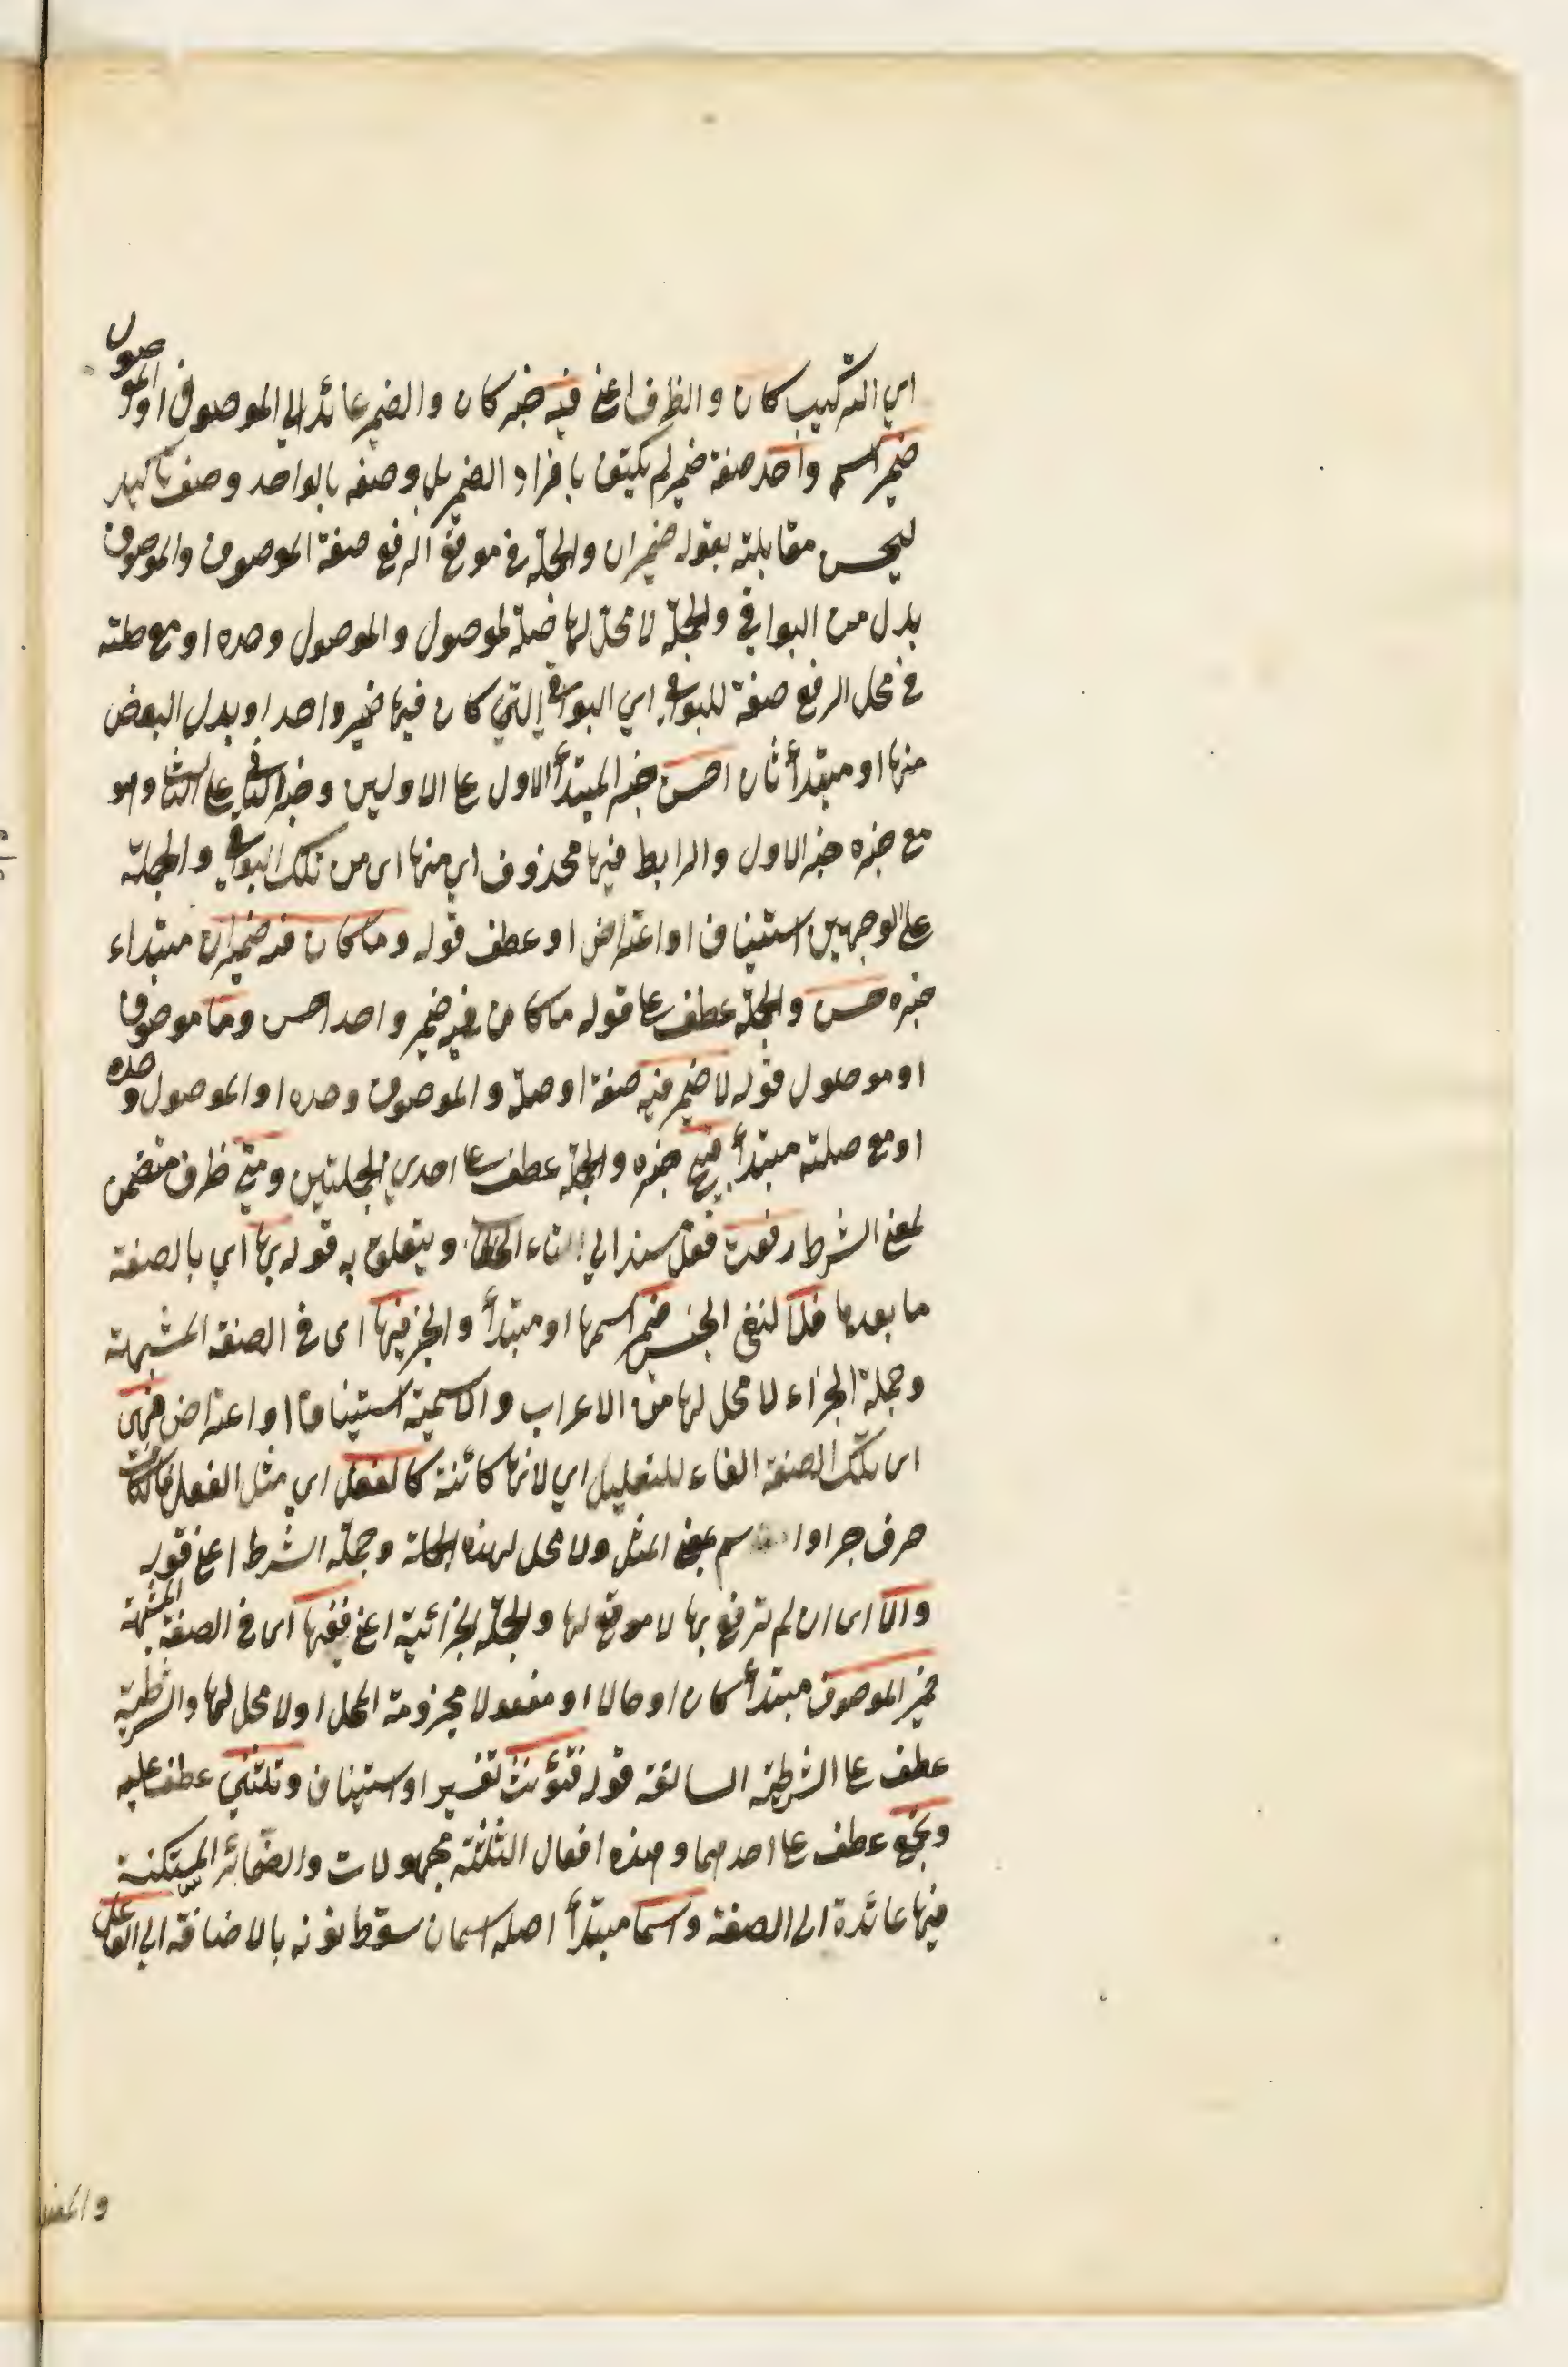 اي التركيب كان والظرف اعني فيه خبر كان والضمير عائد الي الموصوف او الموصول
ضمير اسم واحد صفة ضمير لم يكتف بافراد الضمير بل وصفه بالواحد وصف تاكيد
ليحسن مقابلته بقوله ضميران والجملة في موقع الرفع صفة الموصوف والموصوف
بدل من البواقي والجملة لا محل لها صلة لموصول والموصول وحده او مع صلته
في محل الرفع صفة للبواقي اي البواقي التي كان فيها ضمير واحد او بدل البعض
منها او مبتدأ ثان احسن خبر المبتدأ الاول علي الاولين وخبر الثاني علي الثالث وهو
مع خبره خبر الاول والرابط فيها محذوف اي منها اى من تلك البواقي والجملة
علي الوجهين استيناف او اعتراض او عطف قوله وما كان فيه ضميران مبتداء
خبره حسن والجملة عطف علي قوله ما كان فيه ضمير واحد احسن وما موصوف
او موصول قوله لا ضمير فيه صفة او صلة والموصوف وحده او الموصول وحده
او مع صلته مبتدأ قبيح خبره والجملة عطف علي احدي الجملتين ومتي ظرف متضمن
لمعني الشرط رفعت فعل مسند الي التاء الخطاب ويتعلق به قوله بها اي بالصفة
ما بعدها فلا لنفى الجنس ضمير اسمها او مبتدأ والخبر فيها اى في الصفة المشبهة
وجملة الجزاء لا محل لها من الاعراب والاسمية استينافا او اعتراض فهى
اى تلك الصفة الفاء للتعليل اي لانها كائنة كالفعل اي مثل الفعل فالكاف
حرف جر او اسم بمعني المثل ولا محل لهذه الجملة وجملة الشرط اعني قوله
والا اى ان لم ترفع بها لا موقع لها والجملة الجزائية اعني ففيها اى في الصفة المشبهة
ضمير الموصوف مبتدأ كان او حالا او مفعولا مجزومة المحل او لا محل لها والشرطية
عطف علي الشرطية السابقة قوله فتؤنث تفسير او استيناف وتثني عطف عليه
وتجمع عطف علي احدهما وهذه افعال الثلثة مجهولات والضمائر المستكنة
فيها عائدة الى الصفة واسما مبتدأ اصله اسمان سقط نونه بالاضافة الي الفاعل